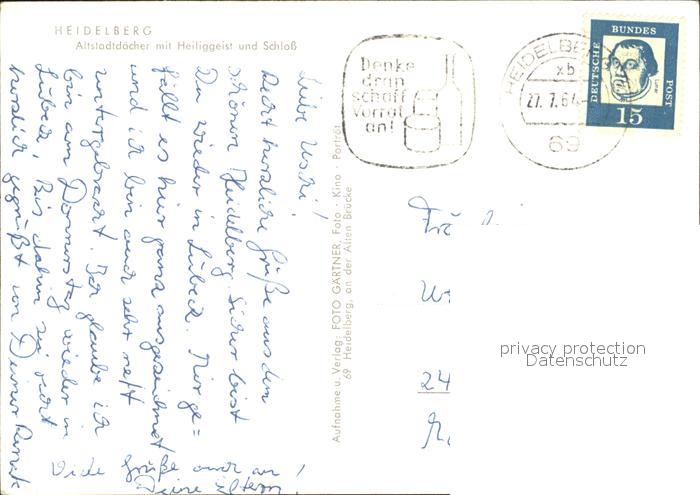 HEIDELBERG
Altstadtdächer mit Heiliggeist und Schloß
Liebe Uschi!
Recht herzliche Grüße aus dem
schönen Heidelberg. Sicher bist
Du wieder in Lübeck. Mir ge=
fällt es hier ganz ausgezeichnet
und ich bin auch sehr nett
untergebracht. Ich glaube ich
bin am Donnerstag wieder in
Lübeck. Bis dahin sei recht
herzlich gegrüßt von Deiner
Viele Grüße auch an
Deine Eltern!
Aufnahme u. Verlag: FOTO GÄRTNER, Foto · Kino · Porträt
69 Heidelberg, an der Alten Brücke
Denke
dran
schaff
Vorrat
an!
HEIDELBE
xb
27.7.64
69
DEUTSCHE
BUNDES
POST
15
Frä
24
privacy protection
Datenschutz